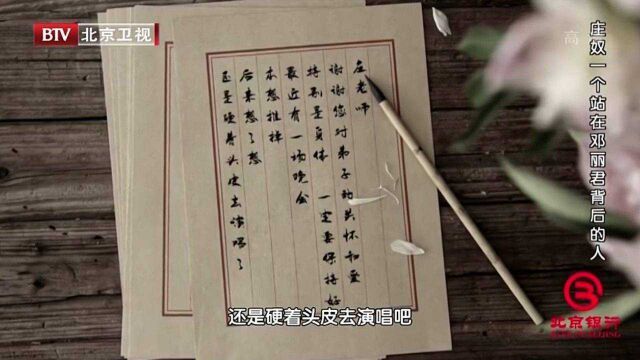 BTV 北京卫视
高
庄奴一个站在邓丽君背后的人
庄老师
谢谢您对弟子的关怀和爱
特别是身体 一定要保持好
最近有一场晚会
本想推
后来想了想
还是硬着头皮去演唱了
还是硬着头皮去演唱吧
北京银行
BANK OF BEIJING